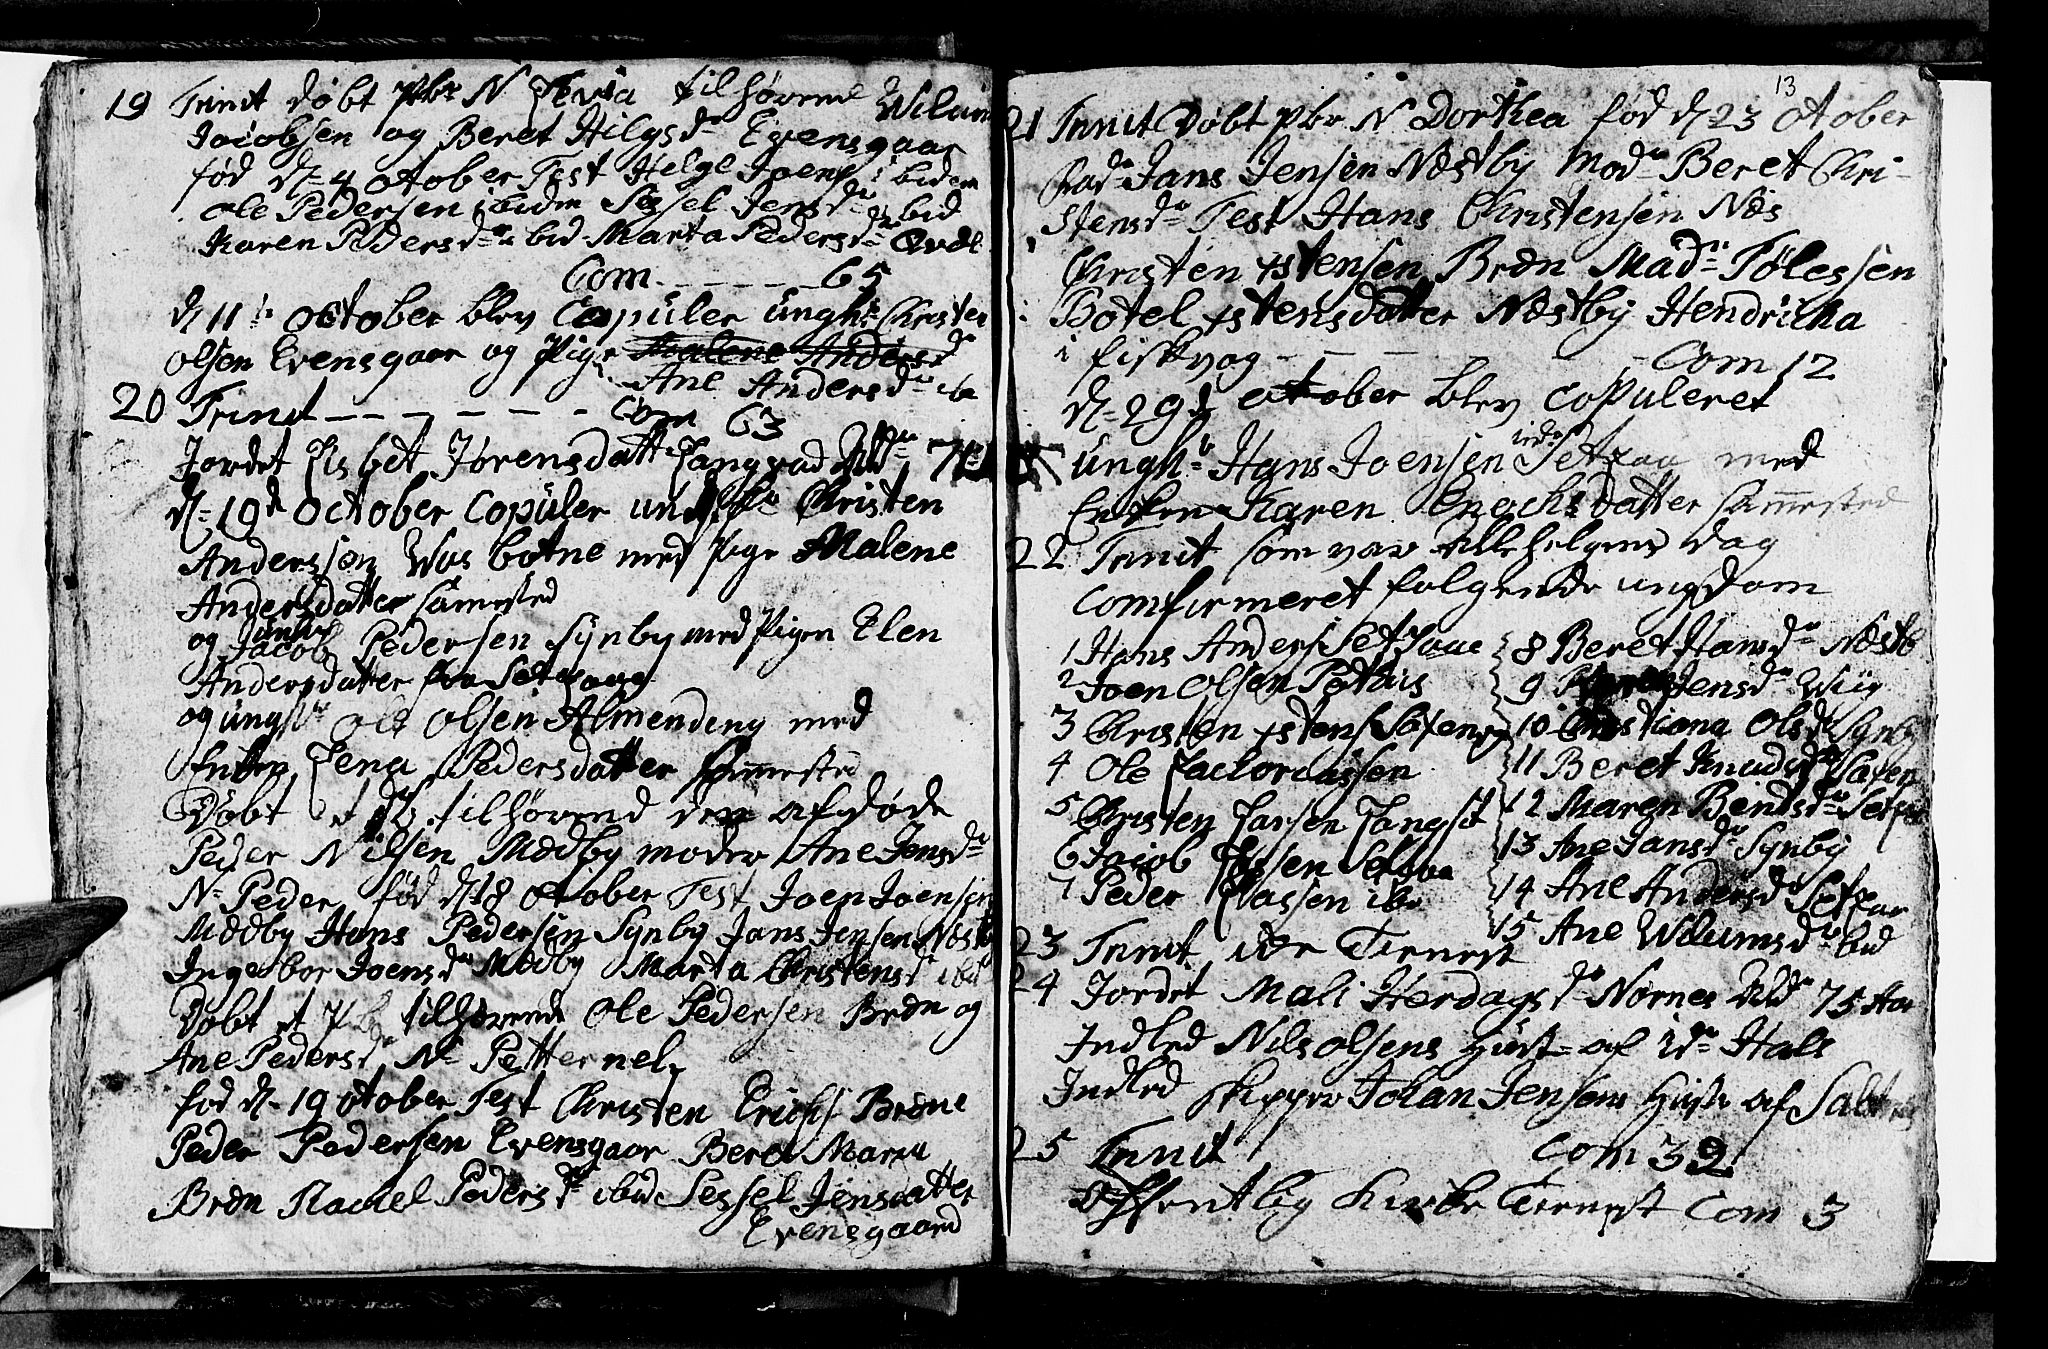 19 Trinit døbt pbr N tilhørend Wilum
Jacobsen og Beret Hilgsdr Evensgaar
fød d 4 otober Test Helge Joens ibidem
Ole Pedersen ibidm Sessel Jensdr ibid
Karen Pedersdr ibid Marta Pedersdr
Com - - - - - 65
d 11 october blev Copuler unghr Christen
olsen Evensgaar og Pige Malene Andersdr
Ane Andersdr ibi
20 Trinit - - - - - - Com 63
Jordet Elsbet Jørensdatt Langvad Ald
d 19d October Copuler Christen
Andersson Wos botne med Pige Malene
Andersdatter sammested
og Jacob Pedersen Synby med Pigen Elen
Andersdatter fra Setsaae
og ungk Ole Olsen Almending med
Enken Lena Pedersdatter sammested
Døbt et tilhørend den afdøde
Peder Nilsen Mædby moder Ane Jensdr
N Peder fød d 18 otober Test Joen Joensen
Mædby Hans Pedersen Synby Jans Jensen Næstb
Ingebor Joensdr Mædby Marta Christensdr ibid
Døbt et tilhørende Ole Pedersen Bræn og
Ane Pedersdr N Petternel
fød d 19 otober Test Christen Erichs Bræne
Peder Pedersen Evensgaar Beret Maria
Bræn Rachel Pedersdr ibid Sessel Jensdatter
Evensgaard
13
21 Trinit Døbt pbr N Dorthea fød d 23 otober
Fadr Jans Jensen Næstby Modr Beret Chri-
stensdr Test Hans Christensen Næs
Christen xstensen Bræn Madr Tølessen
Botel xstensdatter Næstby Hendricka
i fiskvog - - - - Com 12
d 29 october blev copuleret
unghr Hans Joensen Setsaa med
Enken Karen Enochsdatter sammested
22 Trinit som var Allehelgens Dag
Comfirmeret folgende ungdom
1 Hans Anders Setsaae
2 Joen Olsen Pothus
3 Christen xstens
4 Ole Zachoriassen
5 Christen Larsen Langset
6 Jacob Setsaa
7 Peder Classen ibi
8 Beret Hansdr Næstb
9 Jensdr Wiig
10 Christiana Olsdr Synby
11 Beret Knudsdr Saxen
12 Maren Bendsdr Setsaa
13 Ane Jansdr Synby
14 Ane Andersdr Setsaa
15 Ane Wilumsdr ibid
23 Trinit ider Tienest
24 Jordet Mali Herdagsdr Nornes Ald 75 Aar
Indled Nils olsens Hust af Hals
Indled skipper Johan Jensens Hust af Salt
25 Trinit Com 32
offentlig Kirke Tienest Com 3